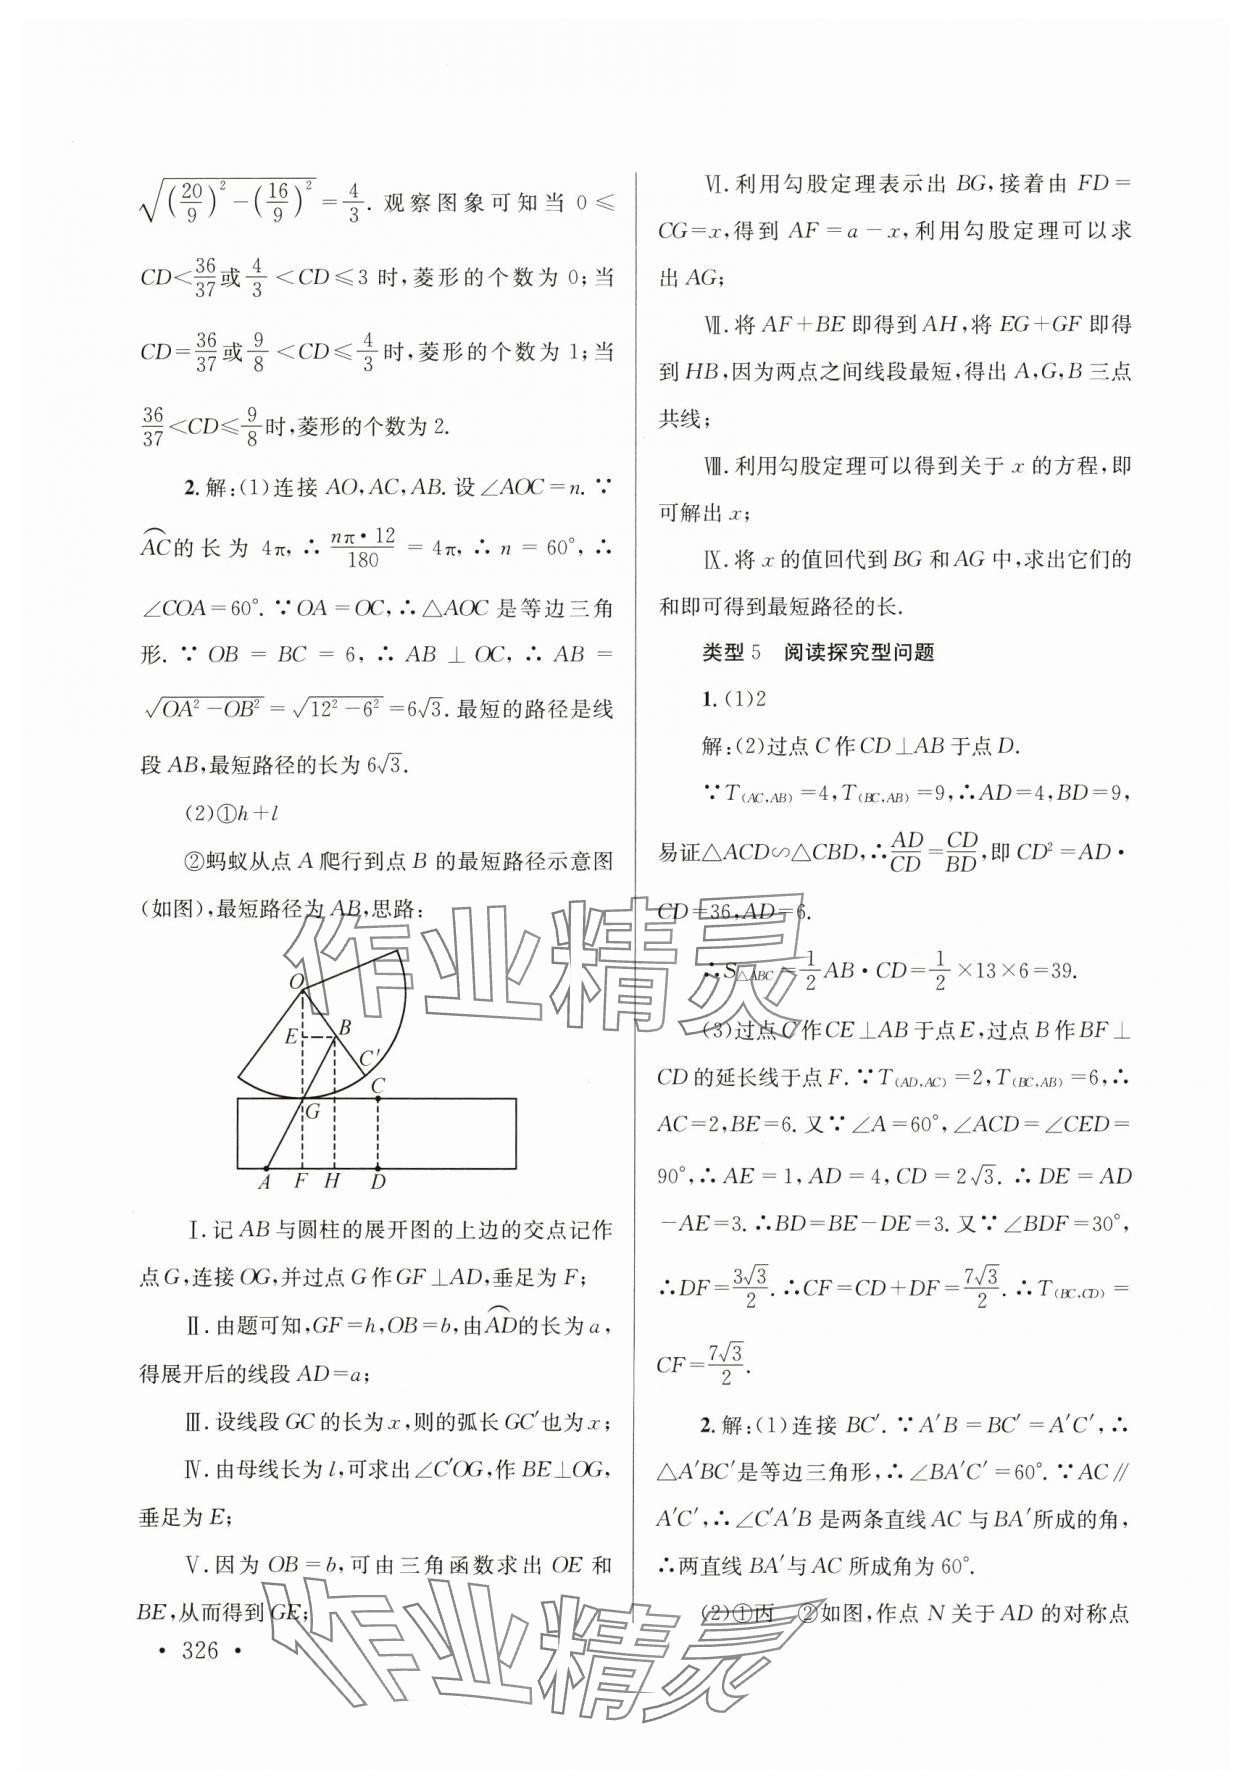 √((20/9)²−(16/9)²)=4/3. 观察图象可知当 0≤
CD<36/37或4/3<CD≤3 时,菱形的个数为 0;当
CD=36/37或9/8<CD≤4/3时,菱形的个数为 1;当
36/37<CD≤9/8时,菱形的个数为 2.
2.解:(1)连接 AO,AC,AB. 设∠AOC=n. ∵
⌒AC的长为 4π,∴nπ·12/180=4π,∴n=60°,∴
∠COA=60°.∵OA=OC,∴△AOC 是等边三角
形. ∵OB=BC=6,∴AB⊥OC,∴AB=
√(OA²−OB²)=√(12²−6²)=6√3.最短的路径是线
段 AB,最短路径的长为 6√3.
(2)①h+l
②蚂蚁从点 A 爬行到点 B 的最短路径示意图
(如图),最短路径为 AB,思路:
O
E
B
C′
C
G
A F H D
Ⅰ.记 AB 与圆柱的展开图的上边的交点记作
点 G,连接 OG,并过点 G 作 GF⊥AD,垂足为 F;
Ⅱ.由题可知,GF=h,OB=b,由⌒AD的长为 a,
得展开后的线段 AD=a;
Ⅲ.设线段 GC 的长为 x,则的弧长 GC′也为 x;
Ⅳ.由母线长为 l,可求出∠C′OG,作 BE⊥OG,
垂足为 E;
Ⅴ.因为 OB=b,可由三角函数求出 OE 和
BE,从而得到 GE;
· 326 ·
Ⅵ.利用勾股定理表示出 BG,接着由 FD=
CG=x,得到 AF=a−x,利用勾股定理可以求
出 AG;
Ⅶ.将 AF+BE 即得到 AH,将 EG+GF 即得
到 HB,因为两点之间线段最短,得出 A,G,B 三点
共线;
Ⅷ.利用勾股定理可以得到关于 x 的方程,即
可解出 x;
Ⅸ.将 x 的值回代到 BG 和 AG 中,求出它们的
和即可得到最短路径的长.
类型 5 阅读探究型问题
1.(1)2
解:(2)过点 C 作 CD⊥AB 于点 D.
∵T(AC,AB)=4,T(BC,AB)=9,∴AD=4,BD=9,
易证△ACD∽△CBD,∴AD/CD=CD/BD,即 CD²=AD·
CD=36,AD=6.
∴S△ABC=1/2AB·CD=1/2×13×6=39.
(3)过点 C 作 CE⊥AB 于点 E,过点 B 作 BF⊥
CD 的延长线于点 F.∵T(AD,AC)=2,T(BC,AB)=6,∴
AC=2,BE=6. 又∵∠A=60°,∠ACD=∠CED=
90°,∴AE=1,AD=4,CD=2√3. ∴DE=AD
−AE=3.∴BD=BE−DE=3.又∵∠BDF=30°,
∴DF=3√3/2.∴CF=CD+DF=7√3/2.∴T(BC,CD)=
CF=7√3/2.
2.解:(1)连接 BC′.∵A′B=BC′=A′C′,∴
△A′BC′是等边三角形,∴∠BA′C′=60°.∵AC∥
A′C′,∴∠C′A′B 是两条直线 AC 与 BA′所成的角,
∴两直线 BA′与 AC 所成角为 60°.
(2)①丙 ②如图,作点 N 关于 AD 的对称点
作业精灵
作业精灵